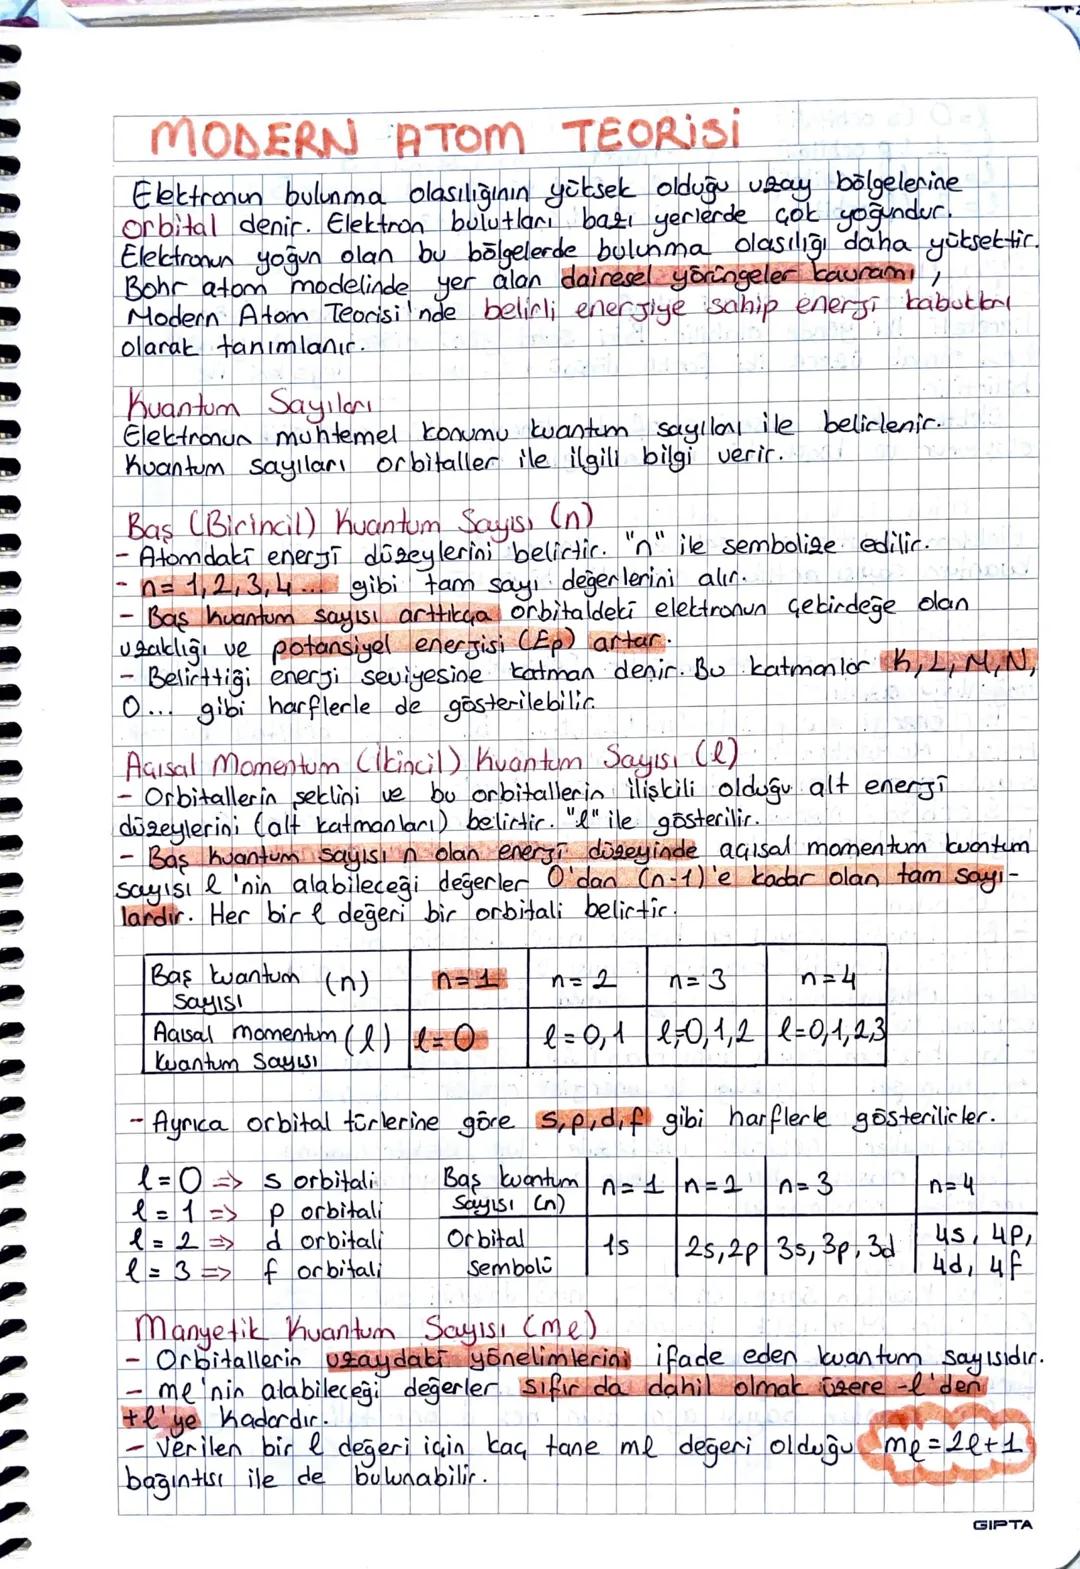 MODERN ATOM TEORİSİ
Elektronun bulunma olasılığının yüksek olduğu uzay bölgelerine
orbital denir. Elektron bulutları bazı yerlerde çok yoğundur.
Elektronun yoğun olan bu bölgelerde bulunma olasılığı daha yüksektir.
Bohr atom modelinde yer alan dairesel yörüngeler kavramı,
Modern Atom Teorisi'nde belirli enerjiye sahip enerji kabukları
olarak tanımlanır.
Kuantum Sayıları
Elektronun muhtemel konumu kuantum sayıları ile belirlenir.
Kuantum sayıları orbitaller ile ilgili bilgi verir.
Baş (Birincil) Kuantum Sayısı (n)
- Atomdaki enerji düzeylerini belirtir. "n" ile sembolize edilir.
- n = 1, 2, 3, 4 ... gibi tam sayı değerlerini alır.
- Baş kuantum sayısı arttıkça orbitaldeki elektronun çekirdeğe olan
uzaklığı ve potansiyel enerjisi (Ep) artar.
- Belirttiği enerji seviyesine katman denir. Bu katmanlar K, L, M, N,
O... gibi harflerle de gösterilebilir.
Açısal Momentum (İkincil) Kuantum Sayısı (l)
- Orbitallerin şeklini ve bu orbitallerin ilişkili olduğu alt enerji
düzeylerini (alt katmanları) belirtir. "l" ile gösterilir.
- Baş kuantum sayısı n olan enerji düzeyinde açısal momentum kuantum
sayısı l'nin alabileceği değerler 0'dan (n-1)'e kadar olan tam sayı-
lardır. Her bir l değeri bir orbitali belirtir.
Baş kuantum sayısı (n) n = 1 n = 2 n = 3 n = 4
Açısal momentum (l) Kuantum Sayısı l = 0 l = 0,1 l = 0,1,2 l = 0,1,2,3
- Ayrıca orbital türlerine göre s, p, d, f gibi harflerle gösterilirler.
l = 0 => s orbitali
l = 1 => p orbitali
l = 2 => d orbitali
l = 3 => f orbitali
Baş kuantum sayısı (n) n = 1 n = 2 n = 3 n = 4
Orbital sembolü 1s 2s, 2p 3s, 3p, 3d 4s, 4p, 4d, 4f
Manyetik Kuantum Sayısı (ml)
- Orbitallerin uzaydaki yönelimlerini ifade eden kuantum sayısıdır.
- ml'nin alabileceği değerler sıfır da dahil olmak üzere -l'den
+l'ye kadardır.
- Verilen bir l değeri için kaç tane ml değeri olduğu ml = 2l+1
bağıntısı ile de bulunabilir.
GIPTA